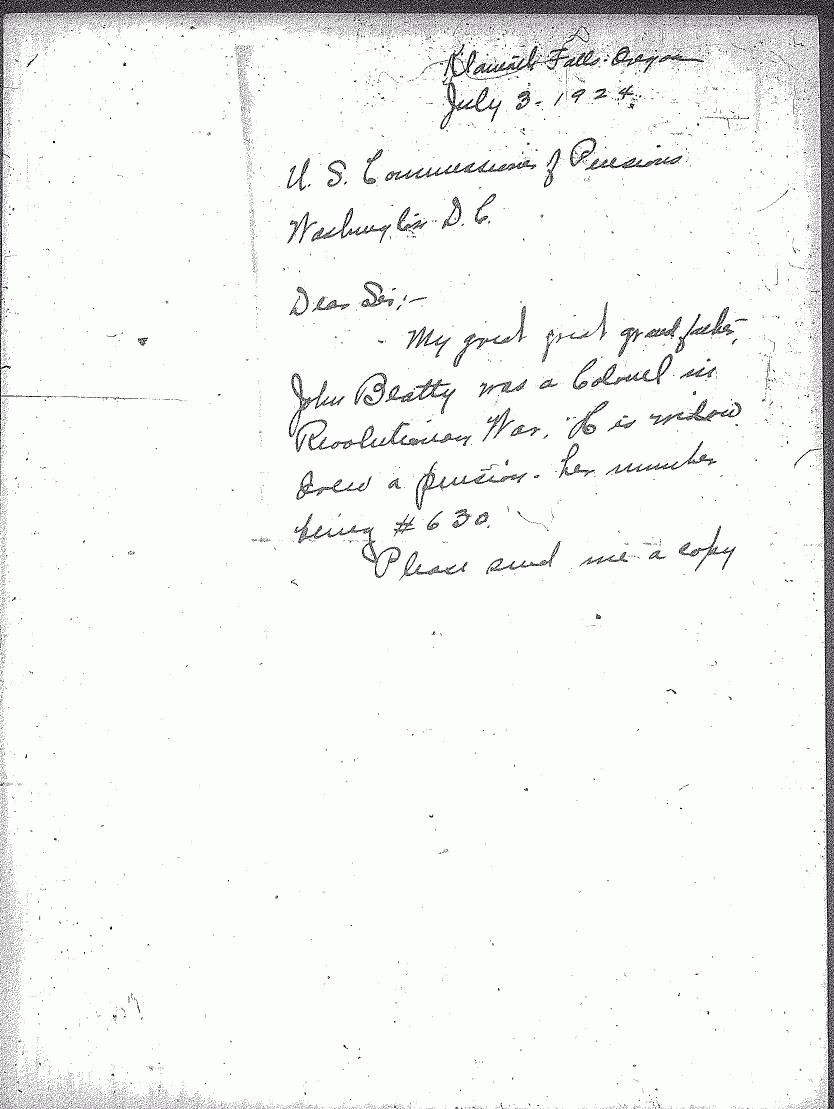 Klamath Falls. Oregon
July 3 - 1924.
U. S. Commissioner of Pensions
Washington D. C.
Dear Sir;-
My great great grandfather,
John Beatty was a Colonel in
Revolutionary War. His widow
drew a pension - her number
being #630.
Please send me a copy